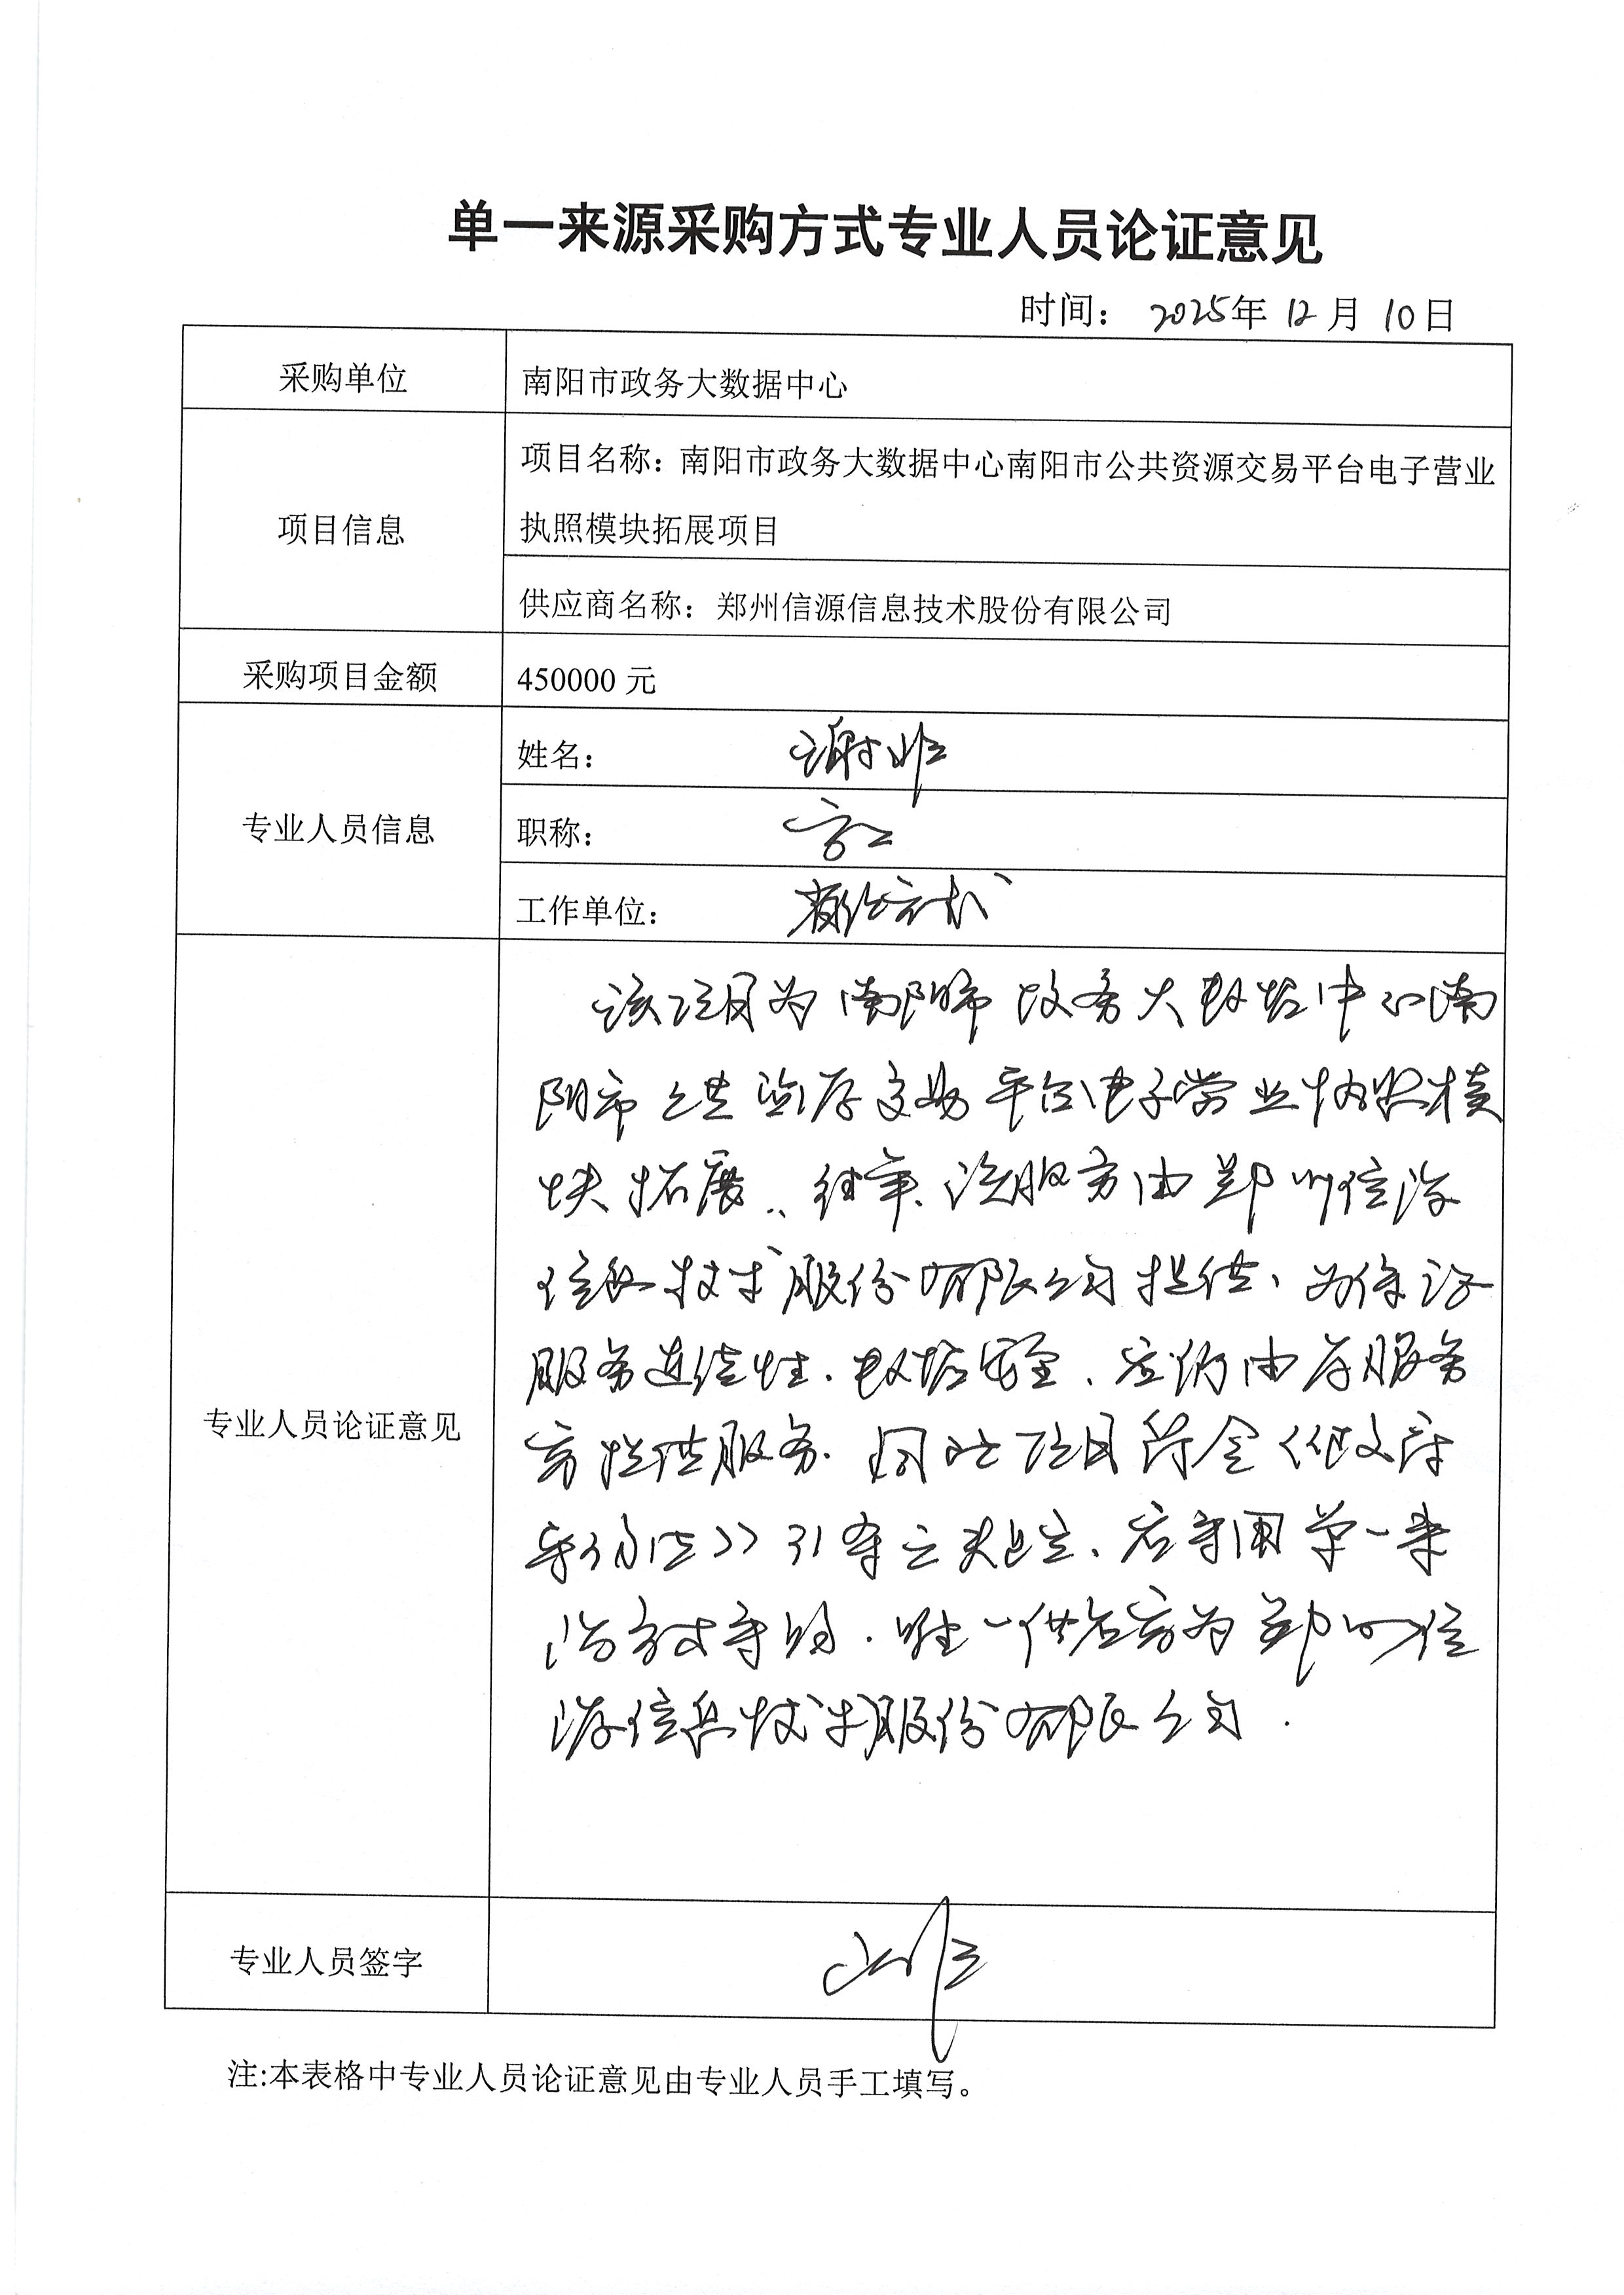 单一来源采购方式专业人员论证意见
时间： 2025年 12 月 10日
采购单位
南阳市政务大数据中心
项目信息
项目名称：南阳市政务大数据中心南阳市公共资源交易平台电子营业
执照模块拓展项目
供应商名称：郑州信源信息技术股份有限公司
采购项目金额
450000 元
专业人员信息
姓名： 谢
职称： 高工
工作单位：
专业人员论证意见
该项目为南阳市政务大数据中心南
阳市公共资源交易平台电子营业执照模
块拓展、往年、该服务由郑州信源
信息技术股份有限公司提供、为保证
服务连续性、数据安全、应仍由原服务
商提供服务. 因此项目符合《政府
采购法》31条之规定、应采用单一来
源方式采购. 唯一供应商为郑州信
源信息技术股份有限公司.
专业人员签字
注:本表格中专业人员论证意见由专业人员手工填写。